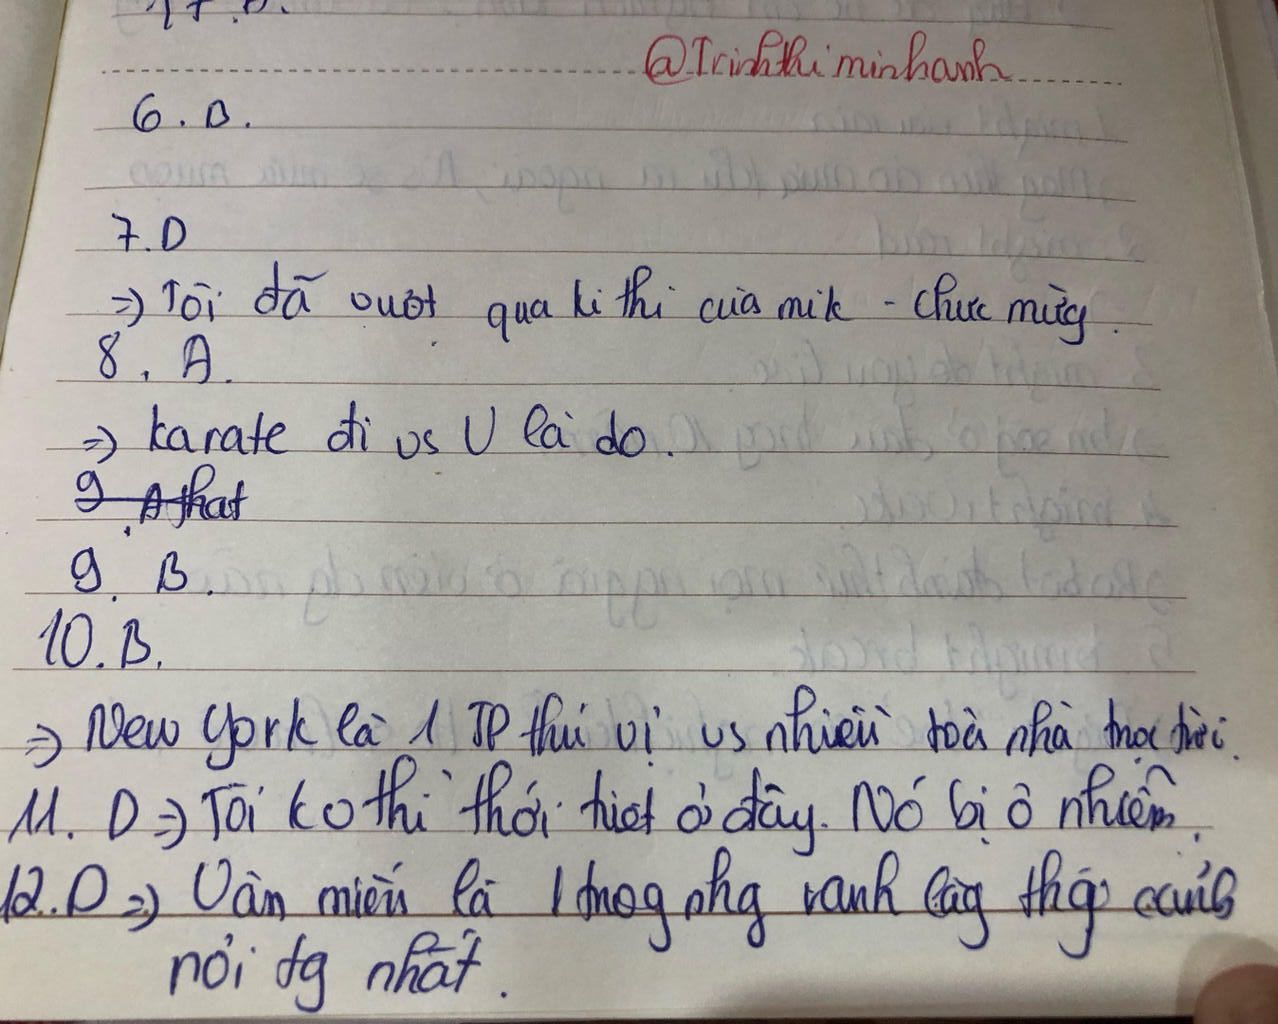 17.B.
@Trinhthiminhanh
6.B.
7.D
=) Tôi đã vượt qua kì thi của mik - chúc mừg.
8. A.
=) karate đi vs V là do.
9. A that
9. B.
10.B.
=) New york là 1 TP thú vị vs nhiều toà nhà trọc trời.
11. D =) Tôi ko thi thời tiết ở đây. Nó bị ô nhiễm.
12.D =) Văn miếu là 1 trog nhg ranh lag thg cảnh
nổi tg nhất.